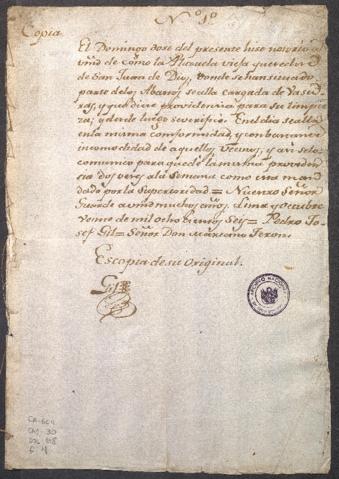 N.º 1º
Copia
El Domingo dose del presente hise notorio a
vmd de cómo la Plasuela viefa queredor
de San Juan de Dios, donde se han situado
parte de los Abanos se alla cargada de Vasu
ras, y que diere providencia para su limpie
za; y desde luego severifico. En el dia se alla
en la misma conformidad, y con bastante
incomodidad de aquellos Vecinos, y así se lo
comunico para que dé la misma providen
cia dos veces a la Semana como esta man
dado por la Superioridad = Nuestro Señor
Guarde a vmd muchos años, Lima y octubre
veinte de mil ocho cientos Seys = Pedro Jo
sef Gil = Señor Don Mariano Feron.
Es copia de su Original.
Gil
ARCHIVO NACIONAL
CA-GC4
CAJ-30
DOC 118
F 4